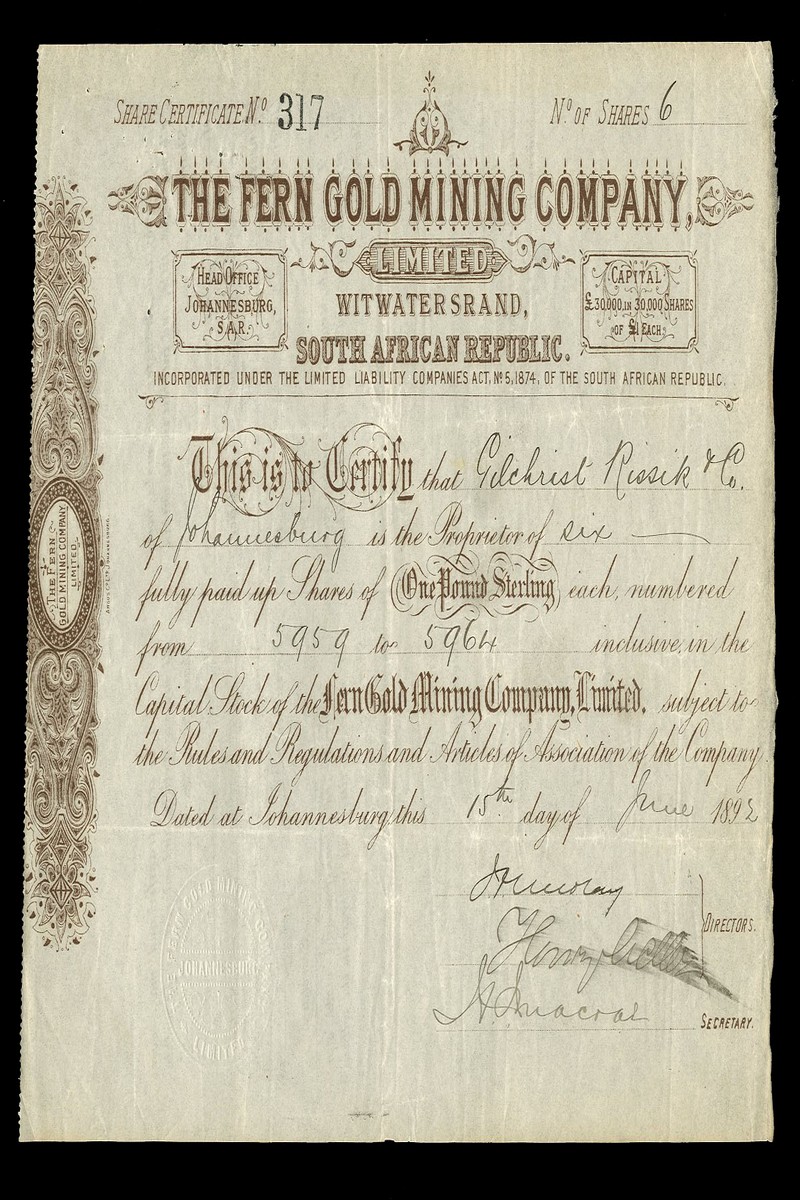 SHARE CERTIFICATE No. 317
No. OF SHARES 6
THE FERN GOLD MINING COMPANY,
LIMITED
HEAD OFFICE
JOHANNESBURG,
S.A.R.
WITWATERSRAND,
SOUTH AFRICAN REPUBLIC.
CAPITAL
£30,000, IN 30,000 SHARES
OF £1 EACH.
INCORPORATED UNDER THE LIMITED LIABILITY COMPANIES ACT, No. 5, 1874, OF THE SOUTH AFRICAN REPUBLIC.
This is to Certify that Gilchrist Rissik & Co.
of Johannesburg is the Proprietor of six
fully paid up Shares of One Pound Sterling each, numbered
from 5959 to 5964 inclusive, in the
Capital Stock of the Fern Gold Mining Company, Limited, subject to
the Rules and Regulations and Articles of Association of the Company.
Dated at Johannesburg, this 15th day of June 1892
DIRECTORS.
SECRETARY.
THE FERN
GOLD MINING COMPANY
LIMITED
FERN GOLD MINING
JOHANNESBURG
LIMITED